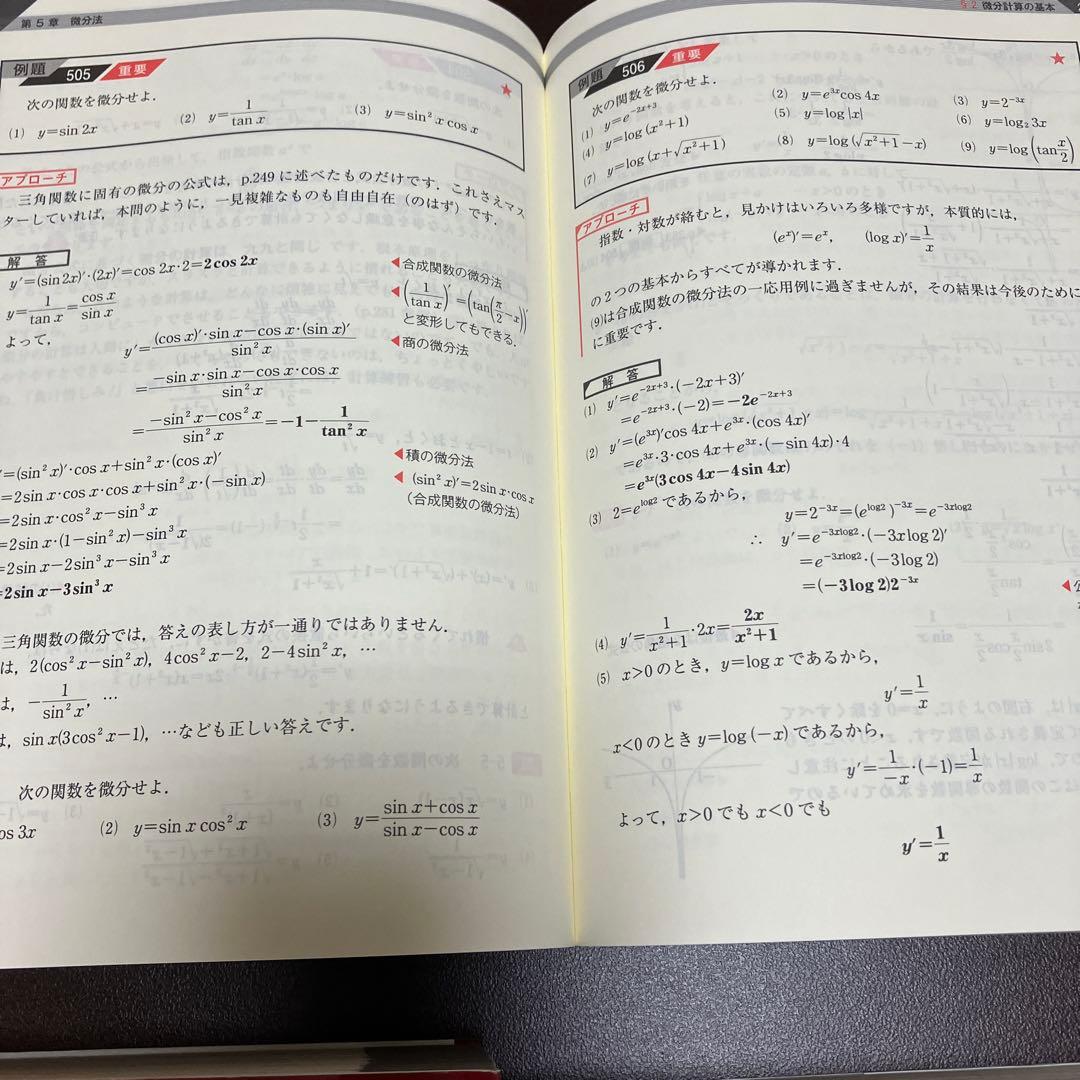 第5章 微分法
例題 505 重要
次の関数を微分せよ.
(1) y=sin 2x (2) y=1/tan x (3) y=sin² x cos x
アプローチ
三角関数に固有の微分の公式は,p.249に述べたものだけです.これさえマス
ターしていれば,本問のように,一見複雑なものも自由自在(のはず)です.
解答
y′=(sin 2x)′·(2x)′=cos 2x·2=2cos 2x ◀合成関数の微分法
y=1/tan x=cos x/sin x ◀(1/tan x)′=(tan(π/2−x))′
と変形してもできる.
よって,
y′=((cos x)′·sin x−cos x·(sin x)′)/sin² x ◀商の微分法
=(−sin x·sin x−cos x·cos x)/sin² x
=(−sin² x−cos² x)/sin² x=−1−1/tan² x
′=(sin² x)′·cos x+sin² x·(cos x)′ ◀積の微分法
=2sin x·cos x·cos x+sin² x·(−sin x) ◀ (sin² x)′=2sin x·cos x
(合成関数の微分法)
=2sin x·cos² x−sin³ x
=2sin x·(1−sin² x)−sin³ x
=2sin x−2sin³ x−sin³ x
=2sin x−3sin³ x
三角関数の微分では,答えの表し方が一通りではありません.
は,2(cos² x−sin² x),4cos² x−2,2−4sin² x,…
は,−1/sin² x,…
は,sin x(3cos² x−1),…なども正しい答えです.
次の関数を微分せよ.
os 3x (2) y=sin x cos² x (3) y=(sin x+cos x)/(sin x−cos x)
§2 微分計算の基本
例題 506 重要
次の関数を微分せよ.
(1) y=e^{−2x+3} (2) y=e^{3x}cos 4x (3) y=2^{−3x}
(4) y=log(x²+1) (5) y=log|x| (6) y=log₂3x
(7) y=log(x+√(x²+1)) (8) y=log(√(x²+1)−x) (9) y=log(tan x/2)
アプローチ
指数・対数が絡むと,見かけはいろいろ多様ですが,本質的には,
(e^x)′=e^x, (log x)′=1/x
の2つの基本からすべてが導かれます.
(9)は合成関数の微分法の一応用例に過ぎませんが,その結果は今後のために
に重要です.
解答
(1) y′=e^{−2x+3}·(−2x+3)′
=e^{−2x+3}·(−2)=−2e^{−2x+3}
(2) y′=(e^{3x})′cos 4x+e^{3x}·(cos 4x)′
=e^{3x}·3·cos 4x+e^{3x}·(−sin 4x)·4
=e^{3x}(3cos 4x−4sin 4x)
(3) 2=e^{log2}であるから,
y=2^{−3x}=(e^{log2})^{−3x}=e^{−3xlog2}
∴ y′=e^{−3xlog2}·(−3xlog 2)′
=e^{−3xlog2}·(−3log 2)
=(−3log 2)2^{−3x}
(4) y′=1/(x²+1)·2x=2x/(x²+1)
(5) x>0のとき,y=log xであるから,
y′=1/x
x<0のときy=log(−x)であるから,
y′=1/−x·(−1)=1/x
よって,x>0でもx<0でも
y′=1/x